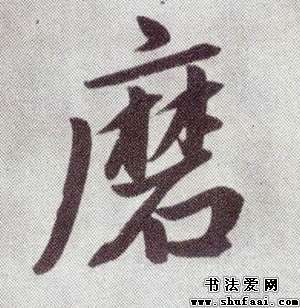 磨
书法爱网
www.shufaai.com